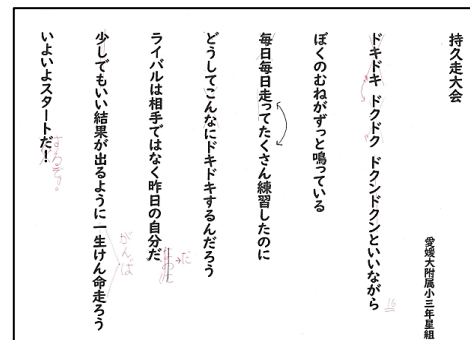 持久走大会
愛媛大附属小三年星組
ドキドキ ドクドク ドクンドクンといいながら
ぼくのむねがずっと鳴っている
毎日毎日走ってたくさん練習したのに
どうしてこんなにドキドキするんだろう
ライバルは相手ではなく昨日の自分だ
少しでもいい結果が出るように一生けん命走ろう
いよいよスタートだ！